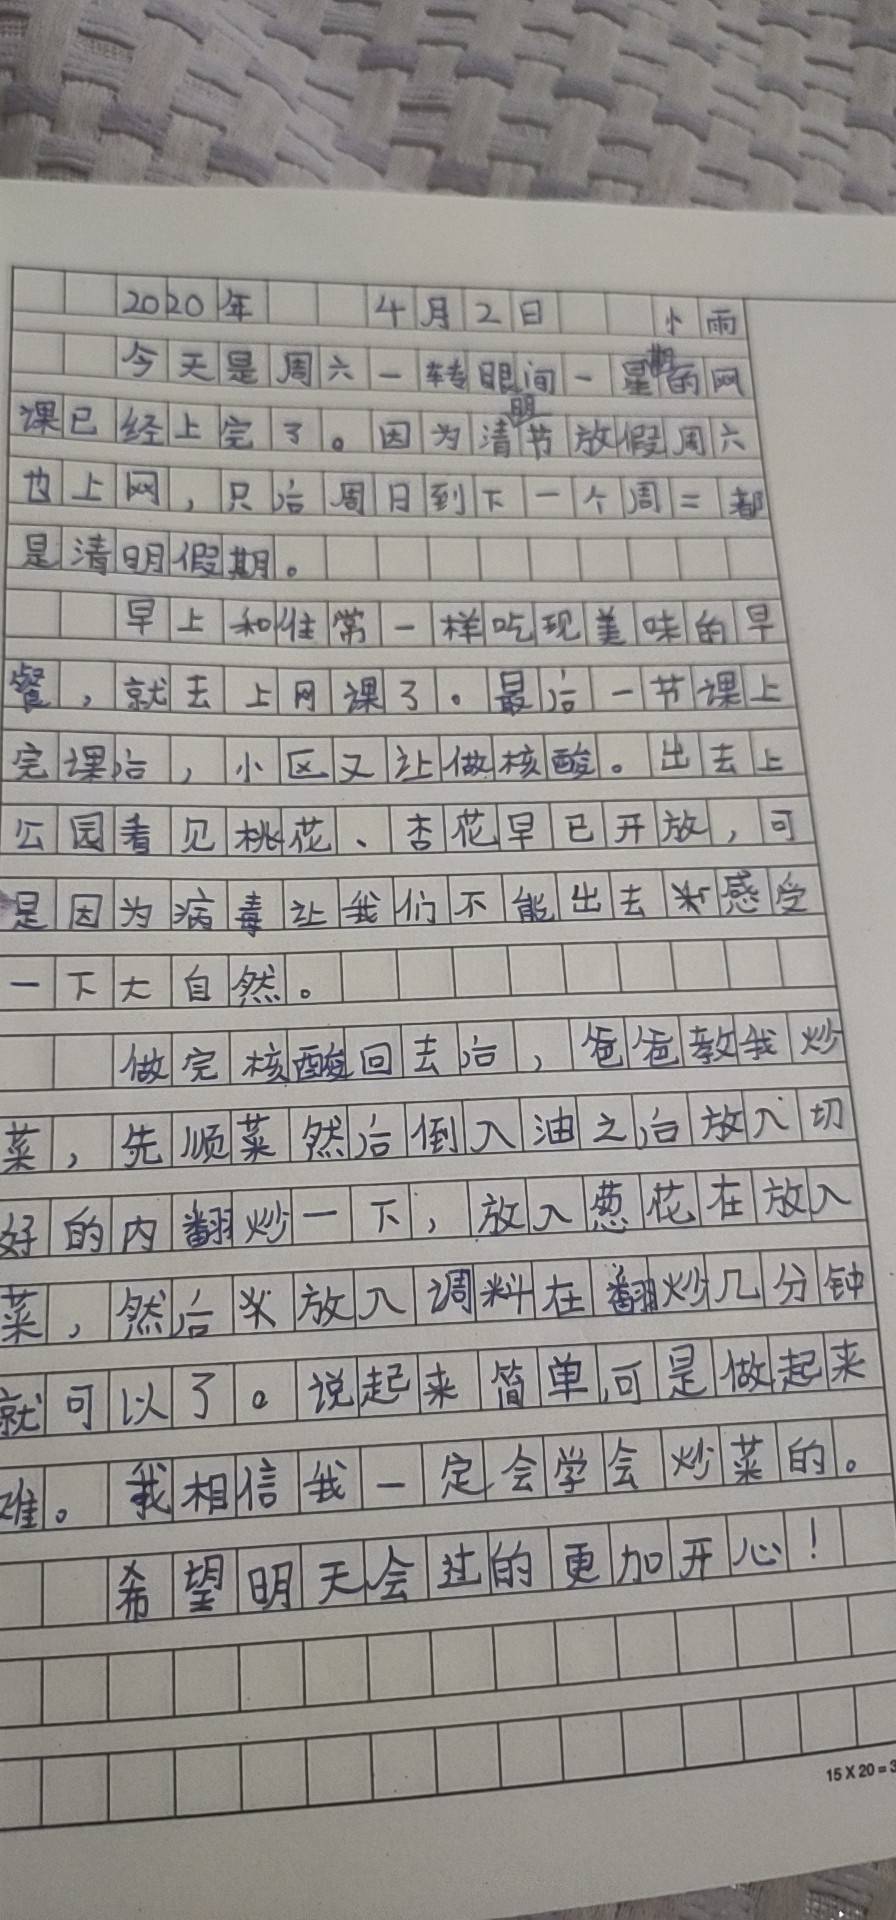 2020年 4月2日 小雨
今天是周六一转眼间一星期的网
课已经上完了。因为清明节放假周六
也上网，只后周日到下一个周二都
是清明假期。
早上和往常一样吃现美味的早
餐，就去上网课了。最后一节课上
完课后，小区又让做核酸。出去上
公园看见桃花、杏花早已开放，可
是因为病毒让我们不能出去感受
一下大自然。
做完核酸回去后，爸爸教我炒
菜，先顺菜然后倒入油之后放入切
好的内翻炒一下，放入葱花在放入
菜，然后放入调料在翻炒几分钟
就可以了。说起来简单，可是做起来
难。我相信我一定会学会炒菜的。
希望明天会过的更加开心！
15×20=3